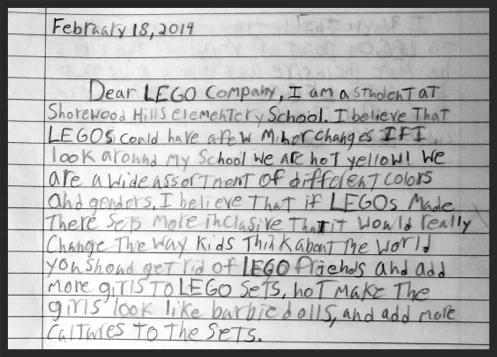 February 18, 2014
Dear LEGO Company, I am a student at
Shorewood Hills elementery School. I believe That
LEGOs could have a few miner changes If I
look around my School we are not yellow! We
are a wide assortment of different colors
and genders. I believe That if LEGOs made
There sets more inclusive that it would really
Change The way kids Think about The world
you shoud get rid of LEGO friends and add
more girls To LEGO Sets, not make The
girls look like barbie dolls, and add more
Cultures To The sets.